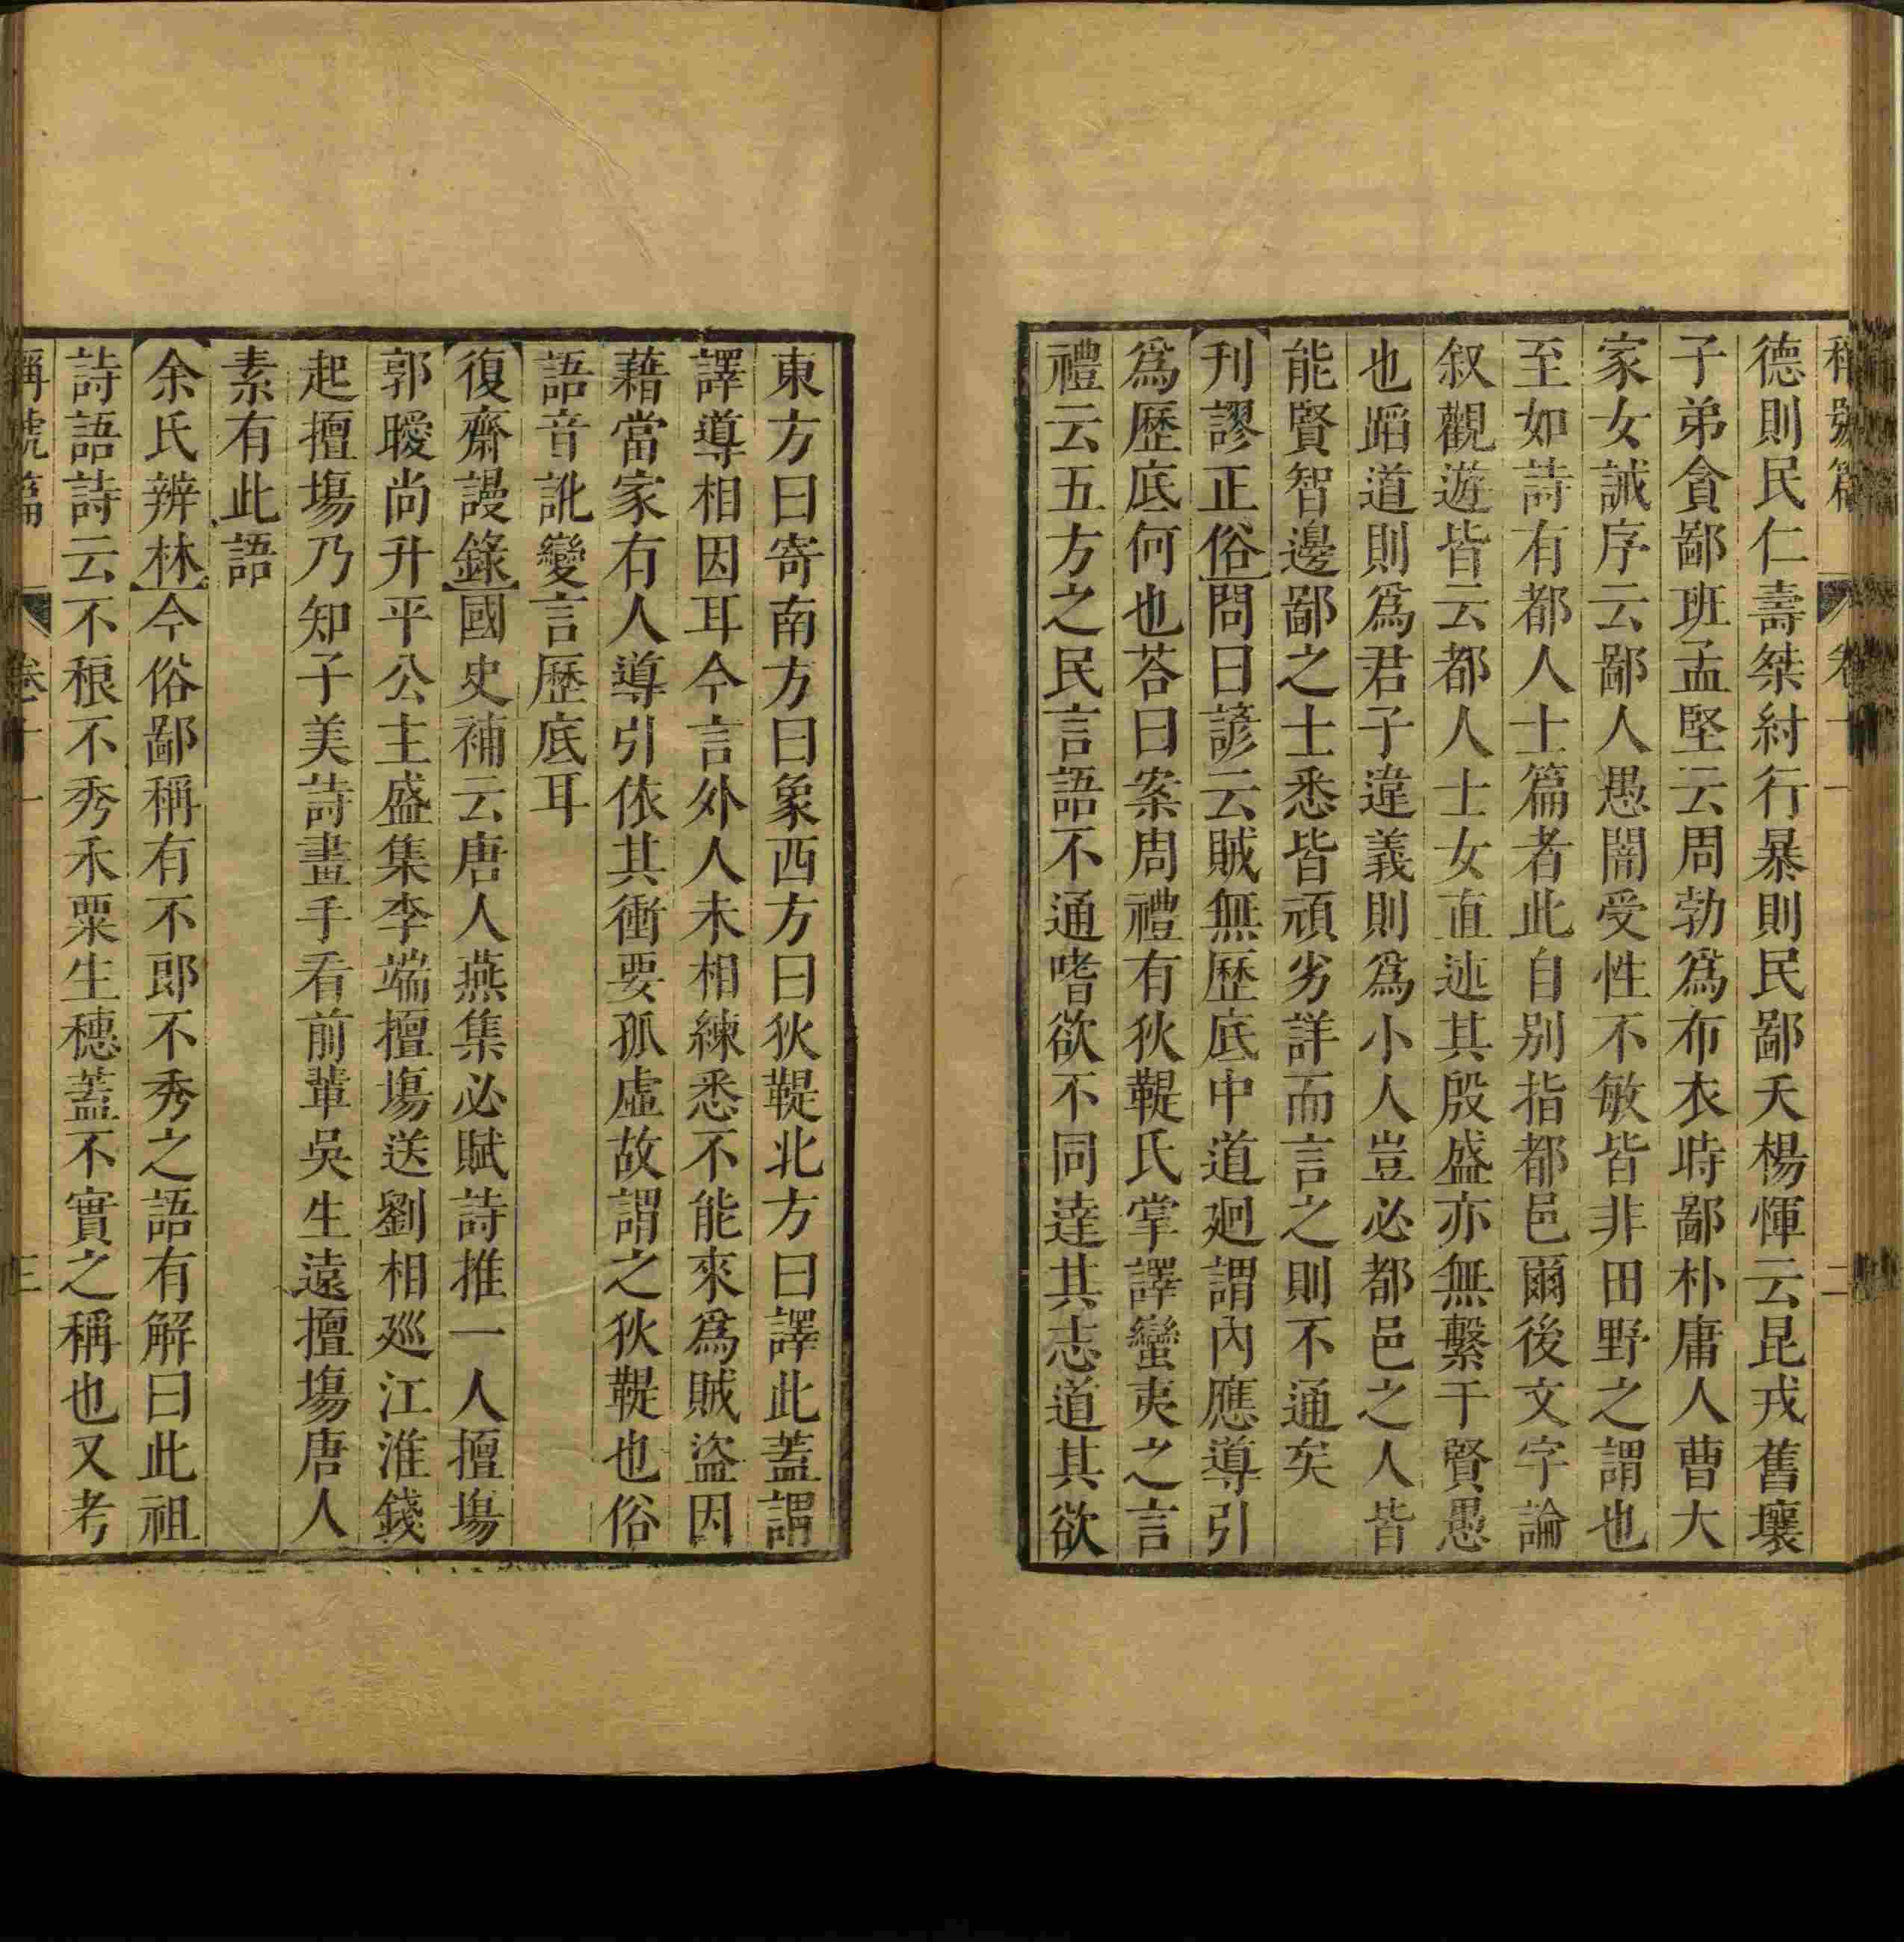 稱號篇 卷十一 二
德則民仁壽桀紂行暴則民鄙夭楊惲云昆戎舊壤
子弟貪鄙班孟堅云周勃爲布衣時鄙朴庸人曹大
家女誡序云鄙人愚闇受性不敏皆非田野之謂也
至如詩有都人士篇者此自别指都邑爾後文字論
叙觀遊皆云都人士女直述其殷盛亦無繫于賢愚
也蹈道則爲君子違義則爲小人豈必都邑之人皆
能賢智邊鄙之士悉皆頑劣詳而言之則不通矣
刊謬正俗問曰諺云賊無歷底中道廻謂內應導引
爲歷底何也荅曰案周禮有狄鞮氏掌譯蠻夷之言
禮云五方之民言語不通嗜欲不同達其志道其欲
東方曰寄南方曰象西方曰狄鞮北方曰譯此蓋謂
譯導相因耳今言外人未相練悉不能來爲賊盜因
藉當家有人導引依其衝要孤虛故謂之狄鞮也俗
語音訛變言歷底耳
復齋謾錄國史補云唐人燕集必賦詩推一人擅塲
郭曖尚升平公主盛集李端擅塲送劉相廵江淮錢
起擅塲乃知子美詩畫手看前輩吳生遠擅塲唐人
素有此語
余氏辨林今俗鄙稱有不郎不秀之語有解曰此祖
詩語詩云不稂不秀禾粟生穗蓋不實之稱也又考
稱號篇 卷十一 三